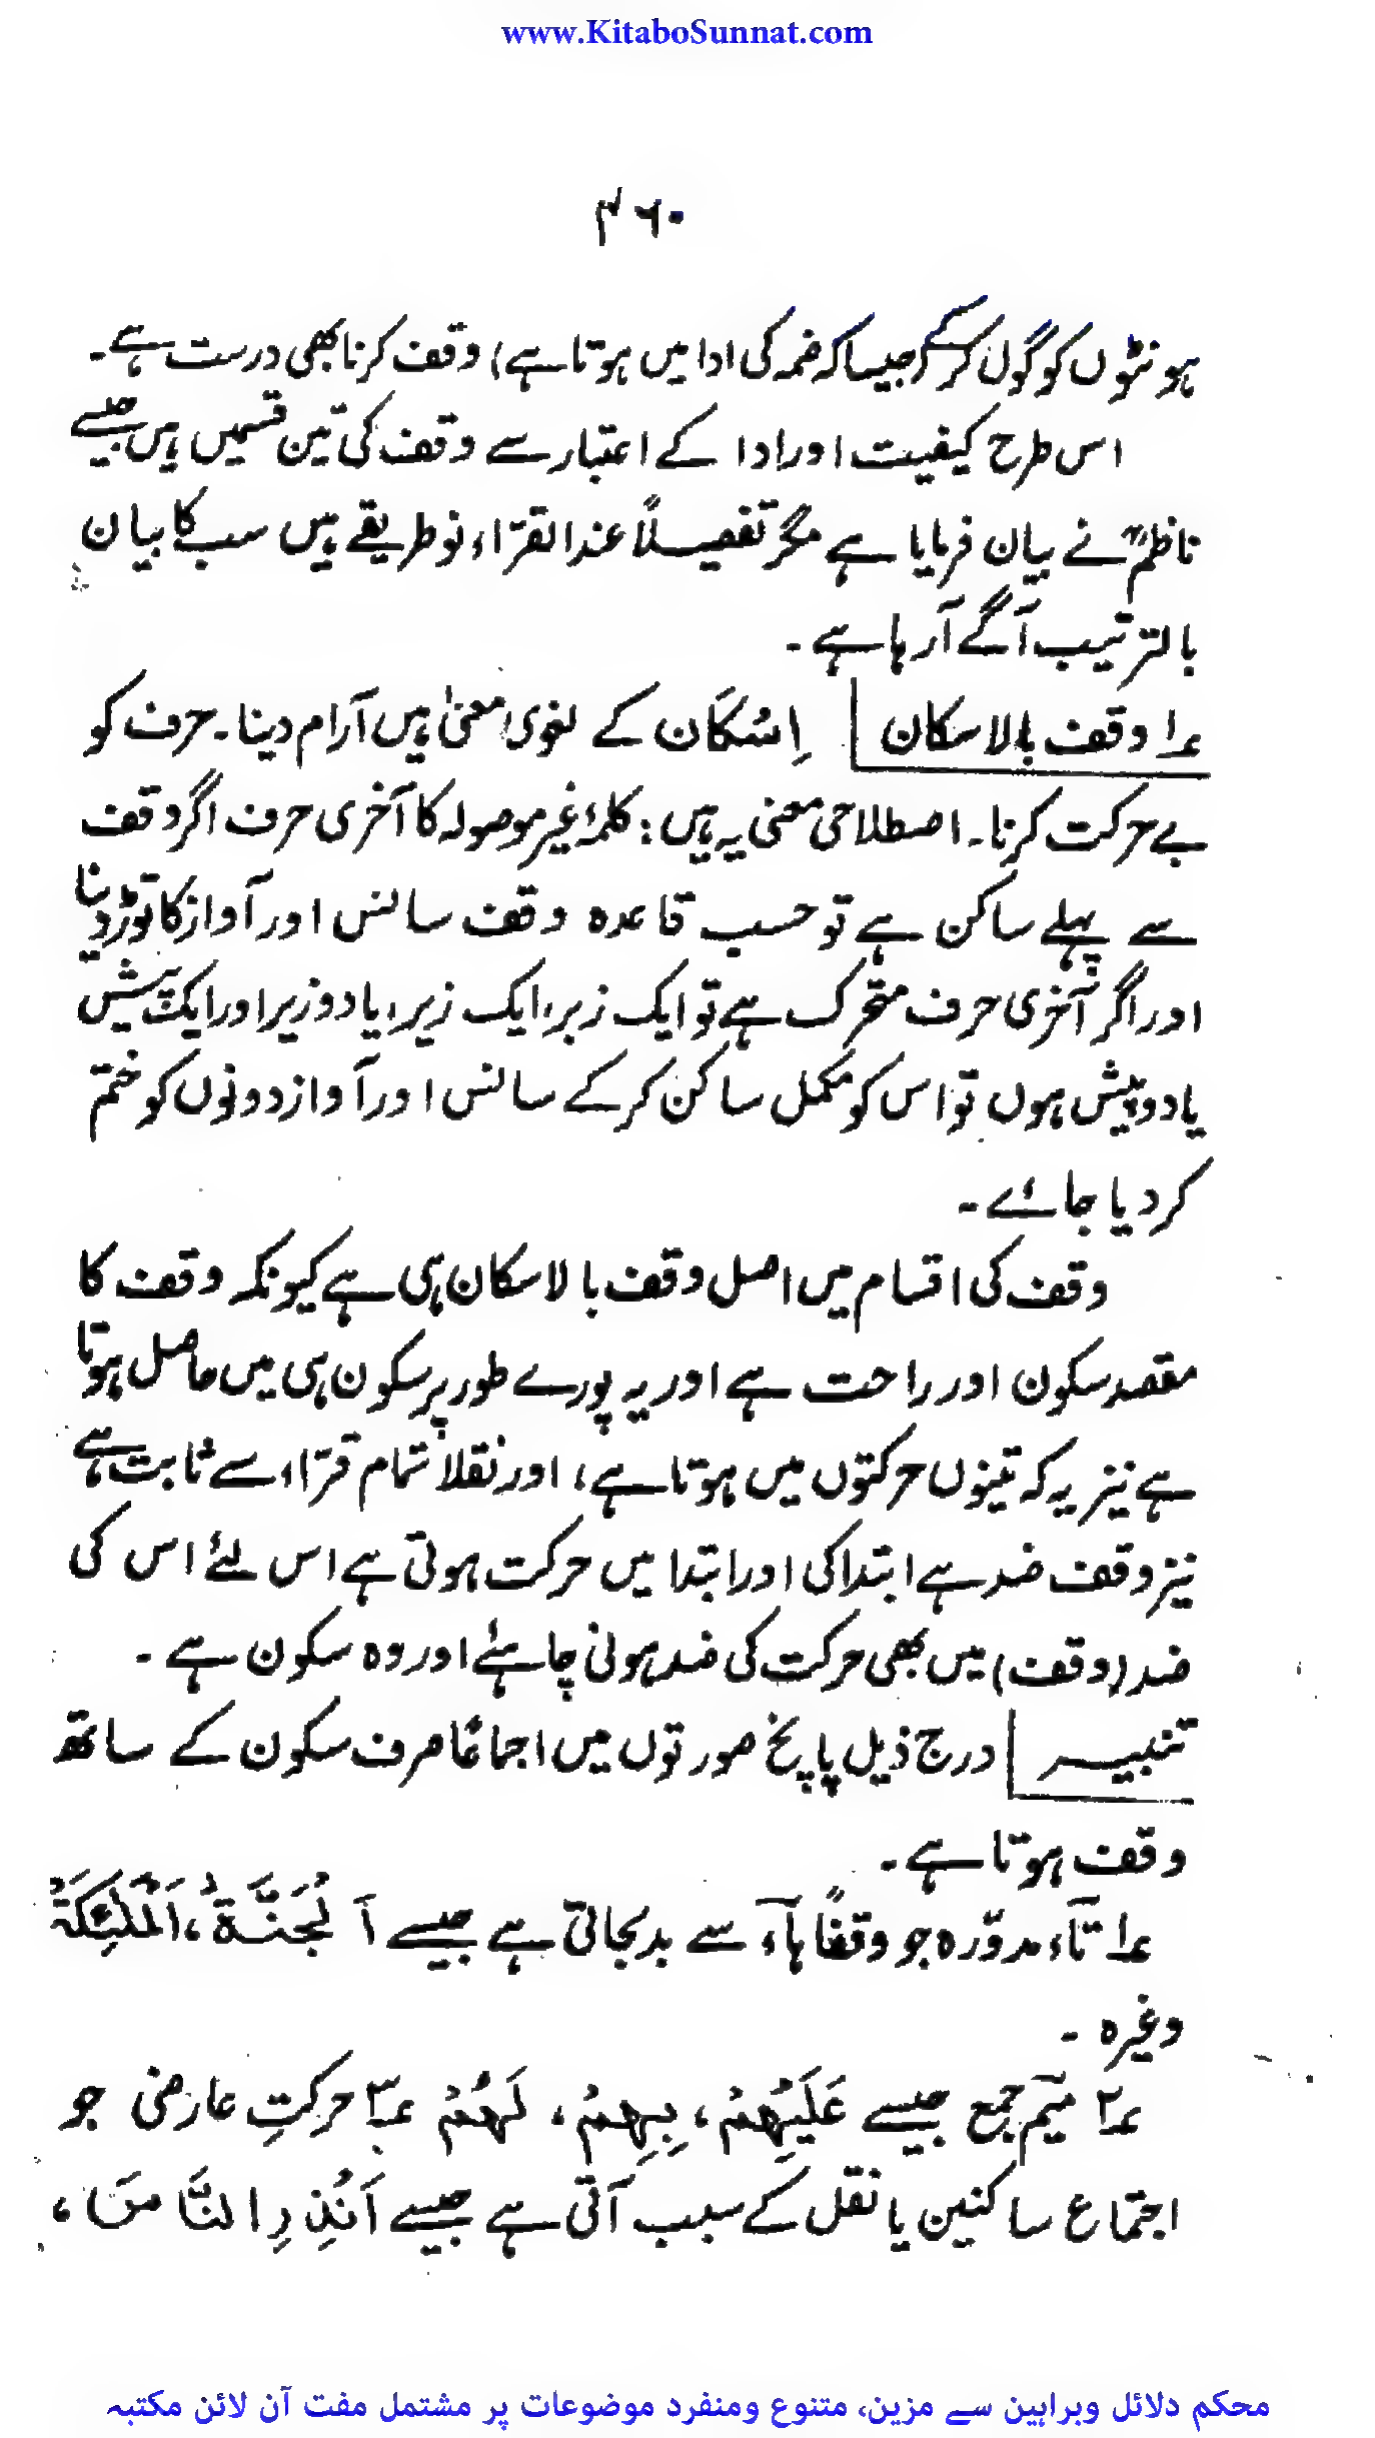 www.KitaboSunnat.com
۴۶۰
ہونٹوں کو گول کر کے (جیسا کہ ضمہ کی ادا میں ہوتا ہے) وقف کرنا بھی درست ہے۔
اس طرح کیفیت اور ادا کے اعتبار سے وقف کی تین قسمیں ہیں جیسے
ناظمؒ نے بیان فرمایا ہے مگر تفصیلاً عند القرّاء نو طریقے ہیں سب کا بیان
بالترتیب آگے آرہا ہے۔
۱؎ وقف بالاسکان اِسْکَان کے لغوی معنیٰ ہیں آرام دینا۔ حرف کو
بے حرکت کرنا۔ اصطلاحی معنی یہ ہیں: کلمۂ غیر موصولہ کا آخری حرف اگر وقف
سے پہلے ساکن ہے تو حسب قاعدہ وقف سانس اور آواز کا توڑ دینا
اور اگر آخری حرف متحرک ہے تو ایک زبر، ایک زیر، یا دو زیر اور ایک پیش
یا دو پیش ہوں تو اس کو مکمل ساکن کر کے سانس اور آواز دونوں کو ختم
کر دیا جائے۔
وقف کی اقسام میں اصل وقف بالاسکان ہی ہے کیونکہ وقف کا
مقصد سکون اور راحت ہے اور یہ پورے طور پر سکون ہی میں حاصل ہوتا
ہے نیز یہ کہ تینوں حرکتوں میں ہوتا ہے، اور نقلاً تمام قرّاء سے ثابت ہے
نیز وقف ضد ہے ابتدا کی اور ابتدا میں حرکت ہوتی ہے اس لئے اس کی
ضد (وقف) میں بھی حرکت کی ضد ہونی چاہئے اور وہ سکون ہے۔
تنبیہ درج ذیل پانچ صورتوں میں اجماعًا صرف سکون کے ساتھ
وقف ہوتا ہے۔
۱؎ تآء مدوّرہ جو وقفًا ہآء سے بدل جاتی ہے جیسے اَلْجَنَّۃُ، اَلْمَلٰئِکَۃُ
وغیرہ۔
۲؎ میٓم جمع جیسے عَلَیْهِمْ، بِهِمْ، لَهُمْ ۳؎ حرکتِ عارضی جو
اجتماع ساکنین یا نقل کے سبب آتی ہے جیسے اَنْذِرِ النَّاسَ،
محکم دلائل وبراہین سے مزین، متنوع ومنفرد موضوعات پر مشتمل مفت آن لائن مکتبہ